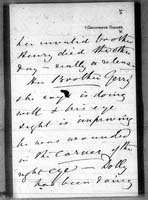 5
1 Grosvenor Square
her invalid brother
Henry died the other
day — really a release
Her Brother
she says is doing
well & his eye
sight is improving
he was wounded
in the corner of the
right eye — Dolly
has been doing